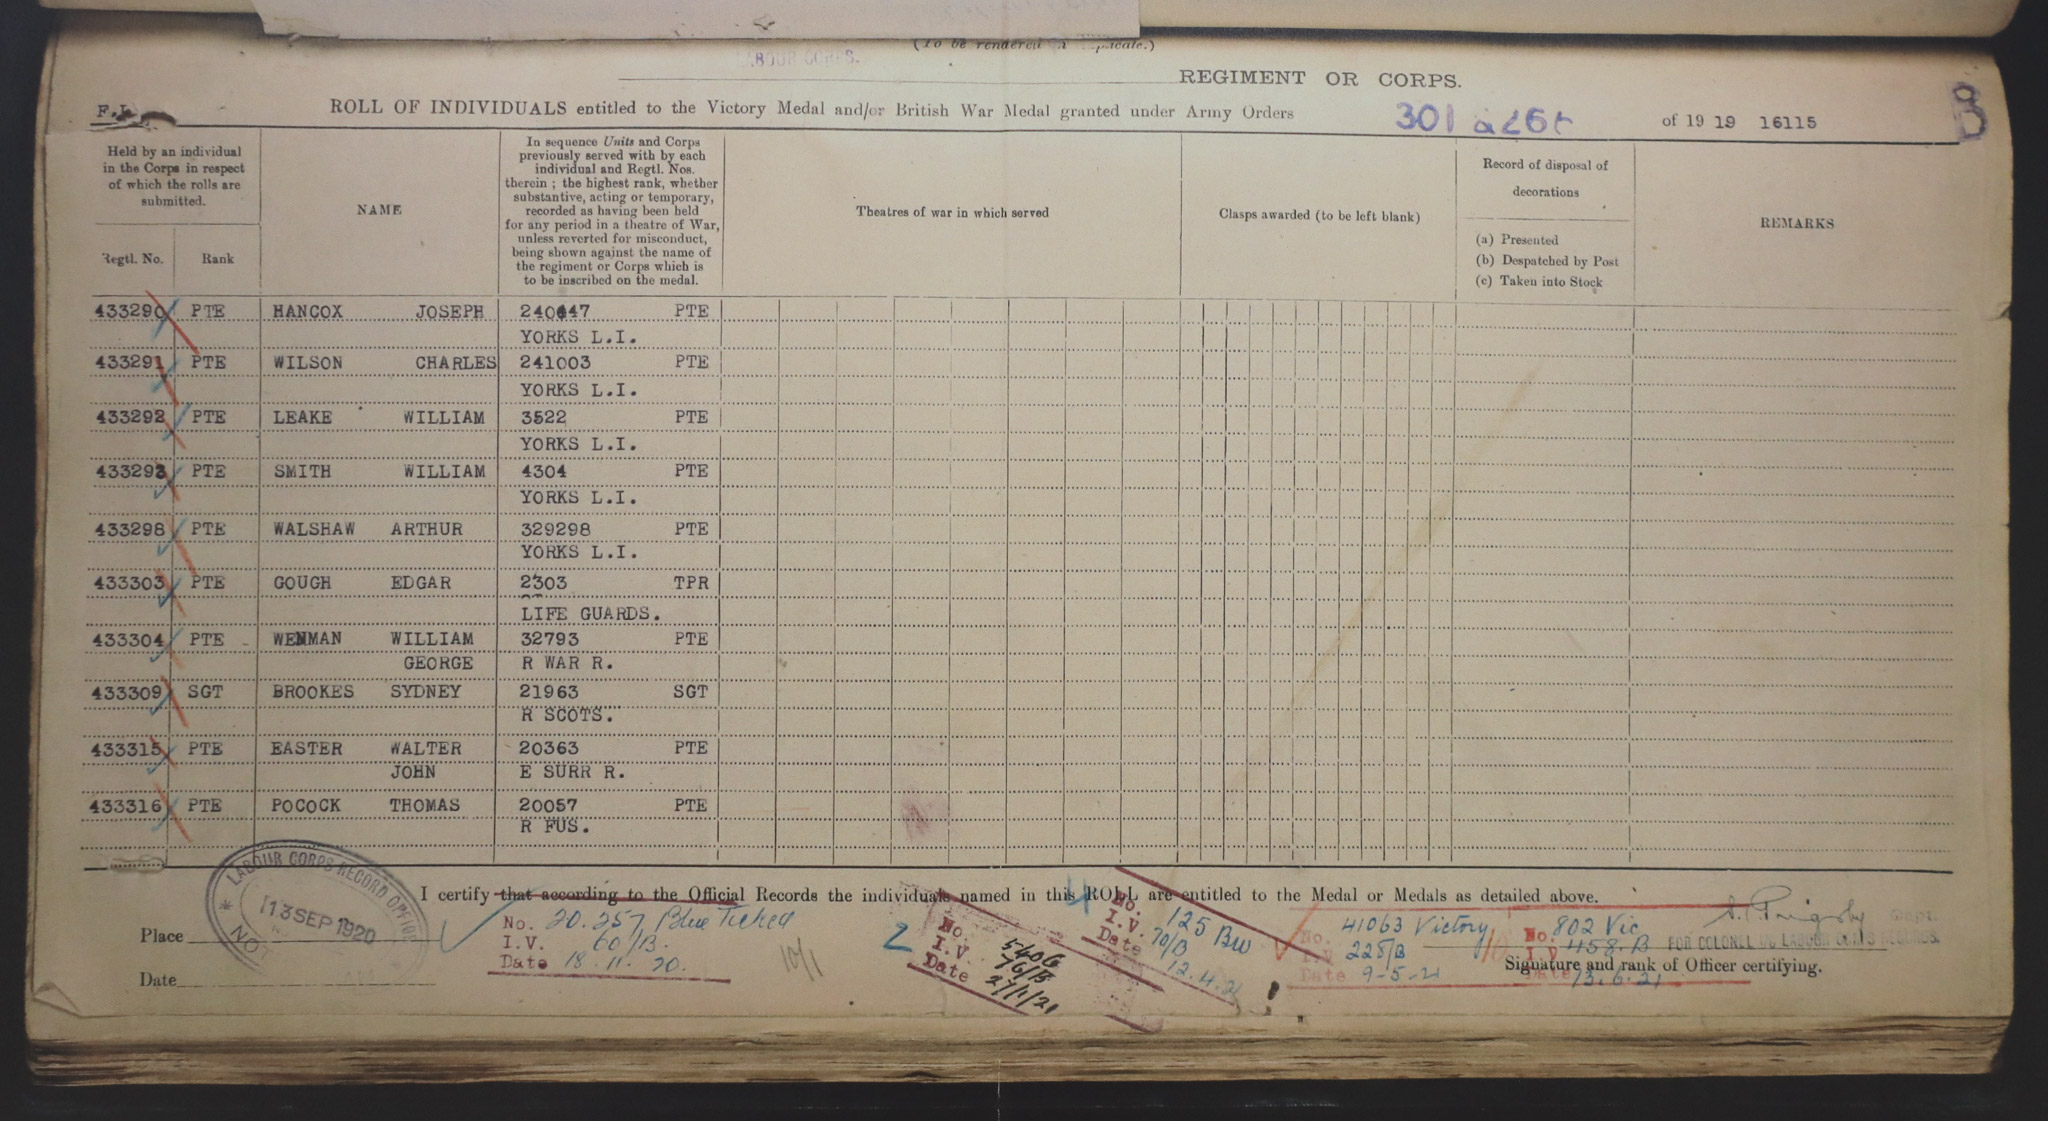 (To be rendered
LABOUR CORPS.
REGIMENT OR CORPS.
ROLL OF INDIVIDUALS entitled to the Victory Medal and/or British War Medal granted under Army Orders 301 & 266 of 19 19 16115
B
Held by an individual
in the Corps in respect
of which the rolls are
submitted.
Regtl. No.
Rank
NAME
In sequence Units and Corps
previously served with by each
individual and Regtl. Nos.
therein ; the highest rank, whether
substantive, acting or temporary,
recorded as having been held
for any period in a theatre of War,
unless reverted for misconduct,
being shown against the name of
the regiment or Corps which is
to be inscribed on the medal.
Theatres of war in which served
Clasps awarded (to be left blank)
Record of disposal of
decorations
(a) Presented
(b) Despatched by Post
(c) Taken into Stock
REMARKS
433290 PTE HANCOX JOSEPH PTE
YORKS L.I.
433291 PTE WILSON CHARLES 241003 PTE
YORKS L.I.
433292 PTE LEAKE WILLIAM 3522 PTE
YORKS L.I.
433293 PTE SMITH WILLIAM 4304 PTE
YORKS L.I.
433298 PTE WALSHAW ARTHUR 329298 PTE
YORKS L.I.
433303 PTE GOUGH EDGAR 2303 TPR
LIFE GUARDS.
433304 PTE WENMAN WILLIAM 32793 PTE
GEORGE R WAR R.
433309 SGT BROOKES SYDNEY 21963 SGT
R SCOTS.
433315 PTE EASTER WALTER 20363 PTE
JOHN E SURR R.
433316 PTE POCOCK THOMAS 20057 PTE
R FUS.
I certify that according to the Official Records the individuals named in this ROLL are entitled to the Medal or Medals as detailed above.
LABOUR CORPS RECORD OFFICE
13 SEP 1920
Place
Date
No. 20.257 Blue Ticked
I.V. 60/B.
Date 18.11.20.
2
No. 5406
I.V. 76/B
Date 27/1/21
4
No. 125 BW
I.V. 70/B
Date 12.4.21
No. 41063 Victory
I.V. 225/B
Date 9-5-21
No. 802 Vic
I.V. 458.B
Date 13.6.21
Capt.
FOR COLONEL I/C LABOUR CORPS RECORDS.
Signature and rank of Officer certifying.